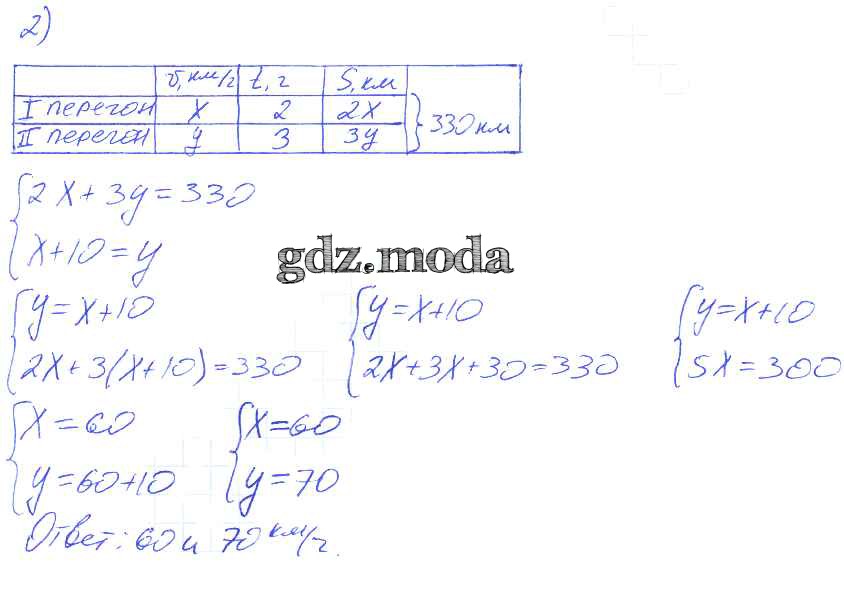 2)
v, км/ч t, ч S, км
I перегон x 2 2x
II перегон y 3 3y
330 км
2x + 3y = 330
x + 10 = y
gdz.moda
y = x + 10
2x + 3(x + 10) = 330
y = x + 10
2x + 3x + 30 = 330
y = x + 10
5x = 300
x = 60
y = 60 + 10
x = 60
y = 70
Ответ: 60 и 70 км/ч.